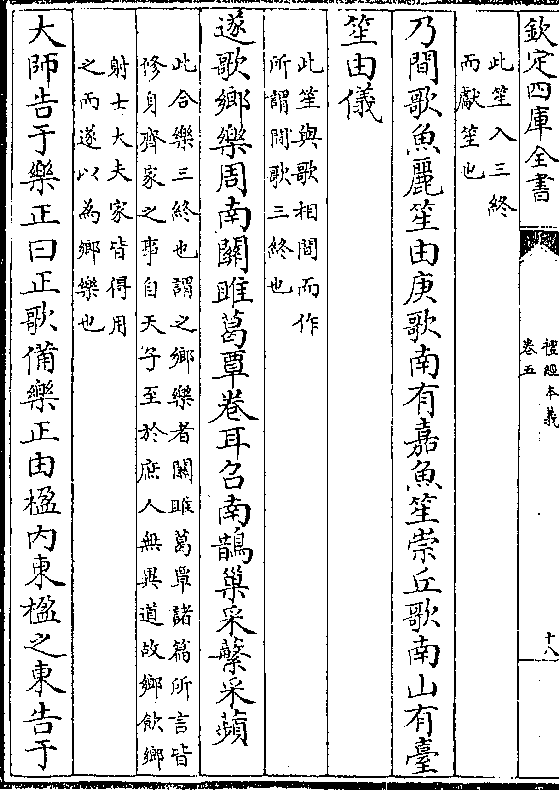 欽定四庫全書
禮經本義
卷五
十八
此笙入三終
而獻笙也
乃間歌魚麗笙由庚歌南有嘉魚笙崇丘歌南山有臺
笙由儀
此笙與歌相間而作
所謂間歌三終也
遂歌鄉樂周南關雎葛覃卷耳召南鵲巢采蘩采蘋
此合樂三終也謂之鄉樂者關雎葛覃諸篇所言皆
修身齊家之事自天子至於庶人無異道故鄉飲鄉
射士大夫家皆得用
之而遂以為鄉樂也
大師告于樂正曰正歌備樂正由楹內東楹之東告于